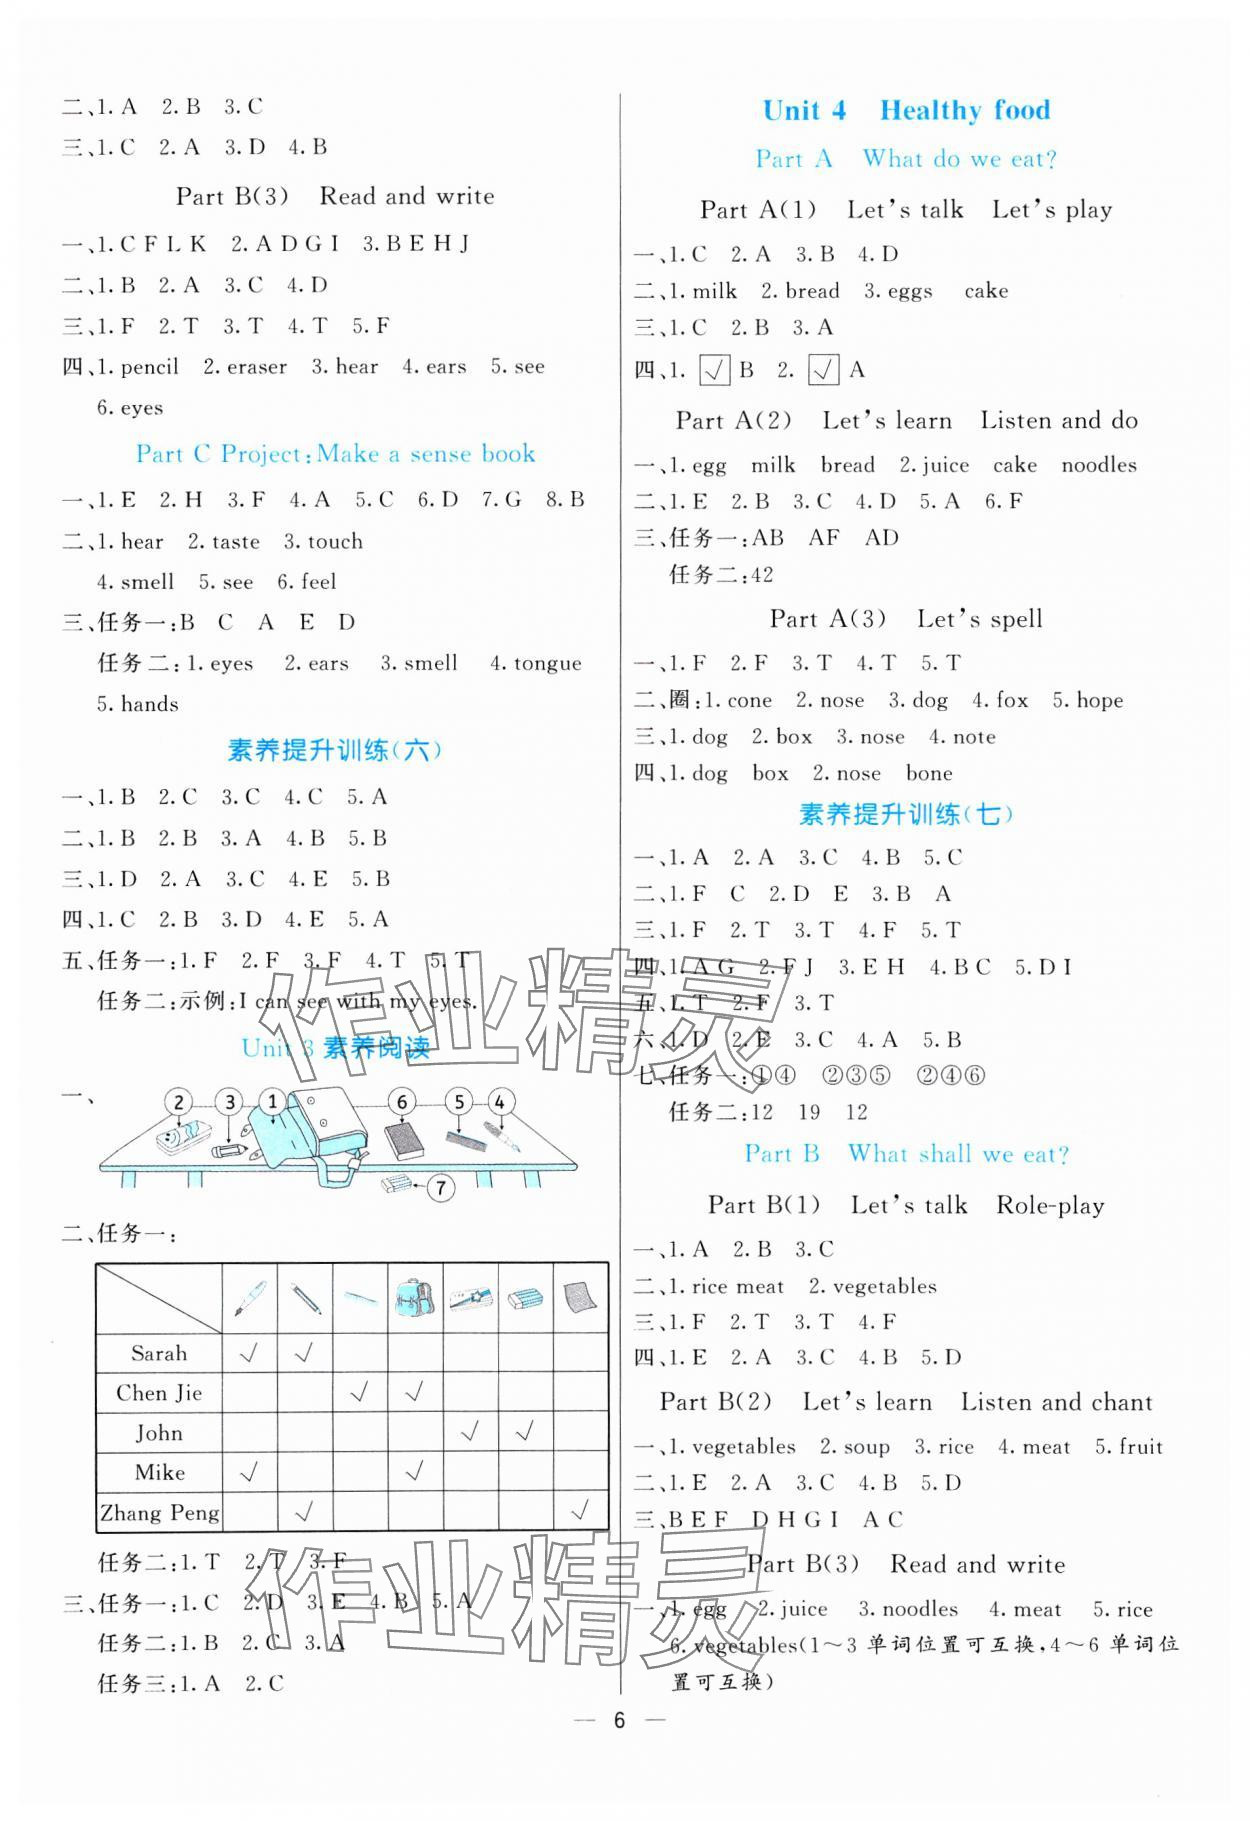 二、1. A 2. B 3. C
三、1. C 2. A 3. D 4. B
Part B(3) Read and write
一、1. C F L K 2. A D G I 3. B E H J
二、1. B 2. A 3. C 4. D
三、1. F 2. T 3. T 4. T 5. F
四、1. pencil 2. eraser 3. hear 4. ears 5. see
6. eyes
Part C Project: Make a sense book
一、1. E 2. H 3. F 4. A 5. C 6. D 7. G 8. B
二、1. hear 2. taste 3. touch
4. smell 5. see 6. feel
三、任务一:B C A E D
任务二:1. eyes 2. ears 3. smell 4. tongue
5. hands
素养提升训练(六)
一、1. B 2. C 3. C 4. C 5. A
二、1. B 2. B 3. A 4. B 5. B
三、1. D 2. A 3. C 4. E 5. B
四、1. C 2. B 3. D 4. E 5. A
五、任务一:1. F 2. F 3. F 4. T 5. T
任务二:示例:I can see with my eyes.
Unit 3 素养阅读
一、
② ③ ① ⑥ ⑤ ④
⑦
二、任务一:
Sarah √ √
Chen Jie √ √
John √ √
Mike √ √
Zhang Peng √ √
任务二:1. T 2. T 3. F
三、任务一:1. C 2. D 3. E 4. B 5. A
任务二:1. B 2. C 3. A
任务三:1. A 2. C
Unit 4 Healthy food
Part A What do we eat?
Part A(1) Let's talk Let's play
一、1. C 2. A 3. B 4. D
二、1. milk 2. bread 3. eggs cake
三、1. C 2. B 3. A
四、1. √ B 2. √ A
Part A(2) Let's learn Listen and do
一、1. egg milk bread 2. juice cake noodles
二、1. E 2. B 3. C 4. D 5. A 6. F
三、任务一:AB AF AD
任务二:42
Part A(3) Let's spell
一、1. F 2. F 3. T 4. T 5. T
二、圈:1. cone 2. nose 3. dog 4. fox 5. hope
三、1. dog 2. box 3. nose 4. note
四、1. dog box 2. nose bone
素养提升训练(七)
一、1. A 2. A 3. C 4. B 5. C
二、1. F C 2. D E 3. B A
三、1. F 2. T 3. T 4. F 5. T
四、1. A G 2. F J 3. E H 4. B C 5. D I
五、1. T 2. F 3. T
六、1. D 2. E 3. C 4. A 5. B
七、任务一:①④ ②③⑤ ②④⑥
任务二:12 19 12
Part B What shall we eat?
Part B(1) Let's talk Role-play
一、1. A 2. B 3. C
二、1. rice meat 2. vegetables
三、1. F 2. T 3. T 4. F
四、1. E 2. A 3. C 4. B 5. D
Part B(2) Let's learn Listen and chant
一、1. vegetables 2. soup 3. rice 4. meat 5. fruit
二、1. E 2. A 3. C 4. B 5. D
三、B E F D H G I A C
Part B(3) Read and write
一、1. egg 2. juice 3. noodles 4. meat 5. rice
6. vegetables(1～3 单词位置可互换,4～6 单词位
置可互换)
作业精灵
作业精灵
— 6 —